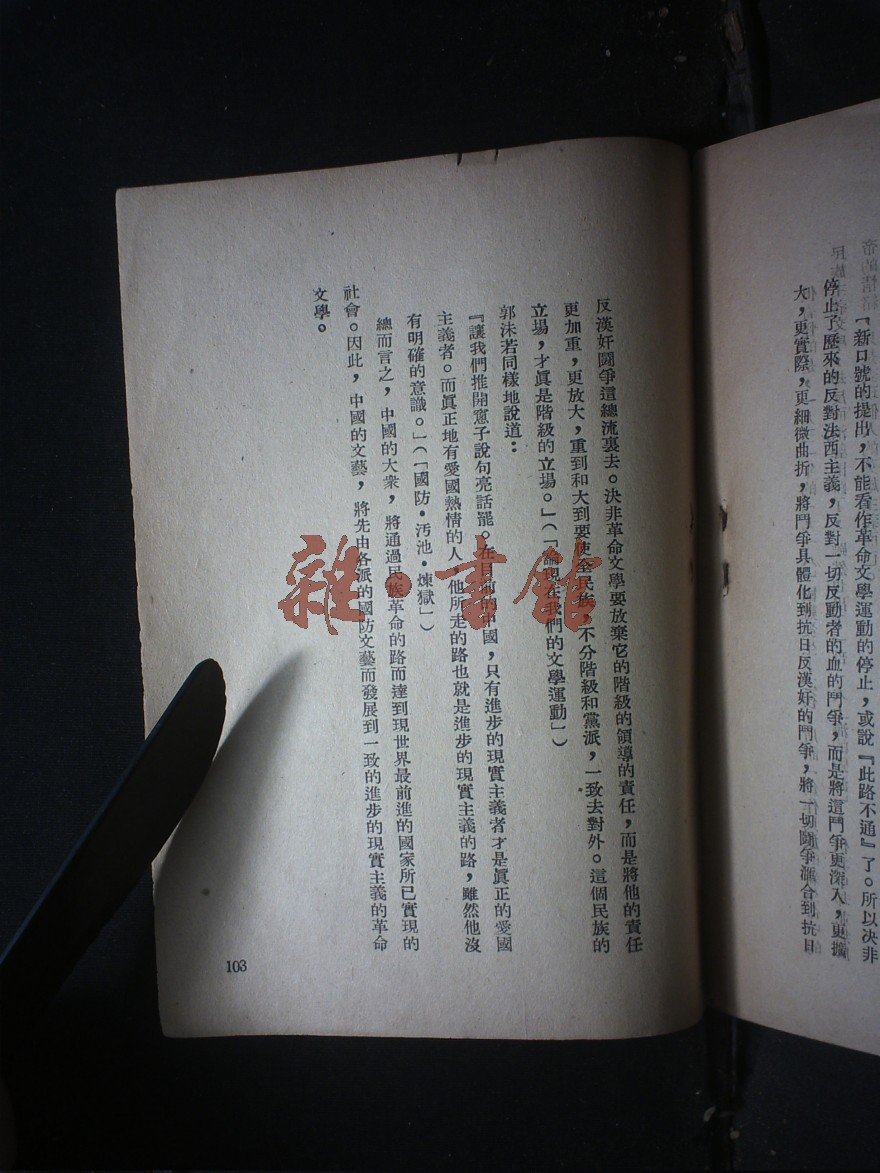 「新口號的提出，不能看作革命文學運動的停止，或說『此路不通』了。所以决非
停止了歷來的反對法西主義，反對一切反動者的血的鬥爭，而是將這鬥爭更深入，更擴
大，更實際，更細微曲折，將鬥爭具體化到抗日反漢奸的鬥爭，將一切鬬爭滙合到抗日
反漢奸鬬爭這總流裏去。决非革命文學要放棄它的階級的領導的責任，而是將他的責任
更加重，更放大，重到和大到要使全民族，不分階級和黨派，一致去對外。這個民族的
立場，才眞是階級的立場。」（「論現在我們的文學運動」）
郭沫若同樣地說道：
『讓我們推開窻子說句亮話罷。在目前的中國，只有進步的現實主義者才是眞正的愛國
主義者。而眞正地有愛國熱情的人，他所走的路也就是進步的現實主義的路，雖然他沒
有明確的意識。」（「國防・汚池・煉獄」）
總而言之，中國的大衆，將通過民族革命的路而達到現世界最前進的國家所已實現的
社會。因此，中國的文藝，將先由各派的國防文藝而發展到一致的進步的現實主義的革命
文學。
103
雜・書館